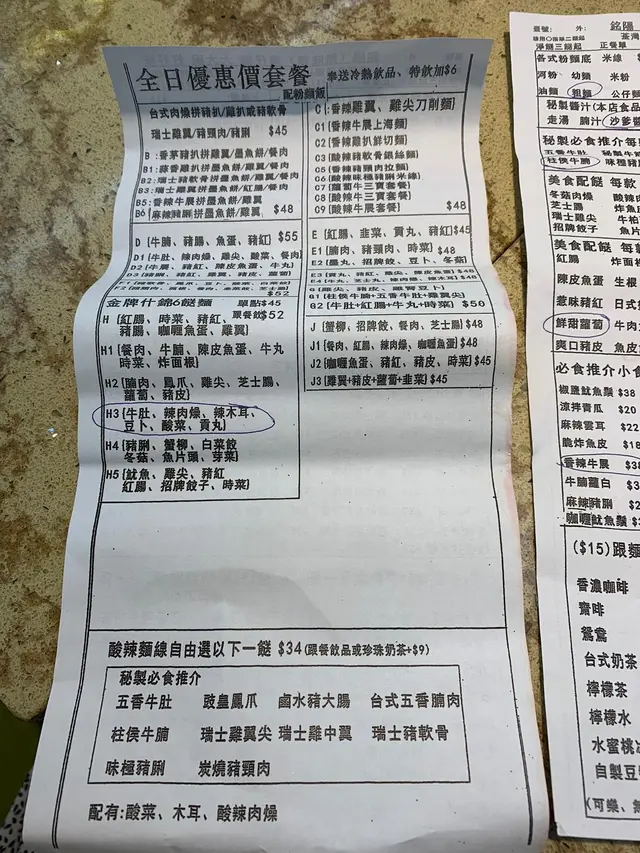 全日優惠價套餐 奉送冷熱飲品、特飲加$6
配粉麵飯
台式肉燥拼豬扒/雞扒或豬軟骨
瑞士雞翼/豬頸肉/豬脷 $45
B :香茅豬扒拼雞翼/墨魚餅/餐肉
B1:蒜香雞扒拼墨魚餅/雞翼/餐肉
B2:瑞士豬軟骨拼墨魚餅/餐肉
B3:瑞士雞翼拼墨魚餅/紅腸/餐肉
B5:香辣牛展拼墨魚餅/雞翼
B6 麻辣豬脷拼墨魚餅/雞翼 $48
D (牛腩、豬腸、魚蛋、豬紅) $55
D1(牛肚、辣肉燥、雞尖、酸菜、餐肉)
D2(牛展、豬紅、陳皮魚蛋、牛丸)
$52
金牌什錦6餸麵 單點$45
跟餐飲$52
H (紅腸、時菜、豬紅、
豬腸、咖喱魚蛋、雞翼)
H1(餐肉、牛腩、陳皮魚蛋、牛丸
時菜、炸面根)
H2(腩肉、鳳爪、雞尖、芝士腸、
蘿蔔、豬皮)
H3(牛肚、辣肉燥、辣木耳、
豆卜、酸菜、貢丸)
H4(豬脷、蟹柳、白菜餃
冬菇、魚片頭、芽菜)
H5(魷魚、雞尖、豬紅
紅腸、招牌餃子、時菜)
C :(香辣雞翼、雞尖刀削麵)
C1(香辣牛展上海麵)
C2(香辣雞扒鮮切麵)
C3(酸辣豬軟骨銀絲麵)
C5(香辣豬頸肉拉麵)
C6(酸辣味極豬脷米線)
C7(蘿蔔牛三寶套餐)
C8(酸辣牛三寶套餐)
C9(酸辣牛展套餐) $48
E (紅腸、韭菜、貢丸、豬紅)$45
E1(腩肉、豬頸肉、時菜) $48
E2(墨丸、豬紅、豆卜、冬菇)
E3(貢丸、豬紅、雞尖、陳皮魚蛋)$48
G (雞尖、豬皮、雞腎豆卜)
G1(柱侯牛腩+五香牛肚+雞翼尖)
G2(牛肚+紅腸+牛丸+時菜) $50
J (蟹柳、招牌餃、餐肉、芝士腸)$48
J1(餐肉、紅腸、辣肉燥、咖喱魚蛋)$48
J2(咖喱魚蛋、豬紅、豬皮、時菜)$45
J3(雞翼+豬皮+蘿蔔+韭菜)$45
酸辣麵線自由選以下一餸 $34(跟餐飲品或珍珠奶茶+$9)
秘製必食推介
五香牛肚 豉皇鳳爪 鹵水豬大腸 台式五香腩肉
柱侯牛腩 瑞士雞翼尖 瑞士雞中翼 瑞士豬軟骨
味極豬脷 炭燒豬頸肉
配有:酸菜、木耳、酸辣肉燥
外: 銘陽
淨餸三餸起 正餐單
各式粉麵底 米線
河粉 幼麵 米粉
油麵 粗麵 公仔麵
秘製醬汁(本店食品
走湯 腩汁 沙爹
秘製必食推介每
五香牛肚
柱侯牛腩 味極豬
美食配餸 每款
蘿蔔豬皮
芝士腸 炸魚
瑞士雞尖 牛柏
招牌餃子 魚片
美食配餸 每款
陳皮魚蛋 生根
惹味豬紅 日式
鮮甜蘿蔔
爽口豬皮 魚皮
必食推介小食
椒鹽魷魚鬚 $38
涼拌青瓜 $20
麻辣雲耳 $22
脆炸魚皮 $18
香辣牛展 $3
牛腩蘿白 $3
麻辣豬脷 $2
咖喱魷魚鬚
($15)跟麵
香濃咖啡
齋啡
鴛鴦
台式奶茶
檸檬茶
檸檬水
水蜜桃
自製豆
(可樂、